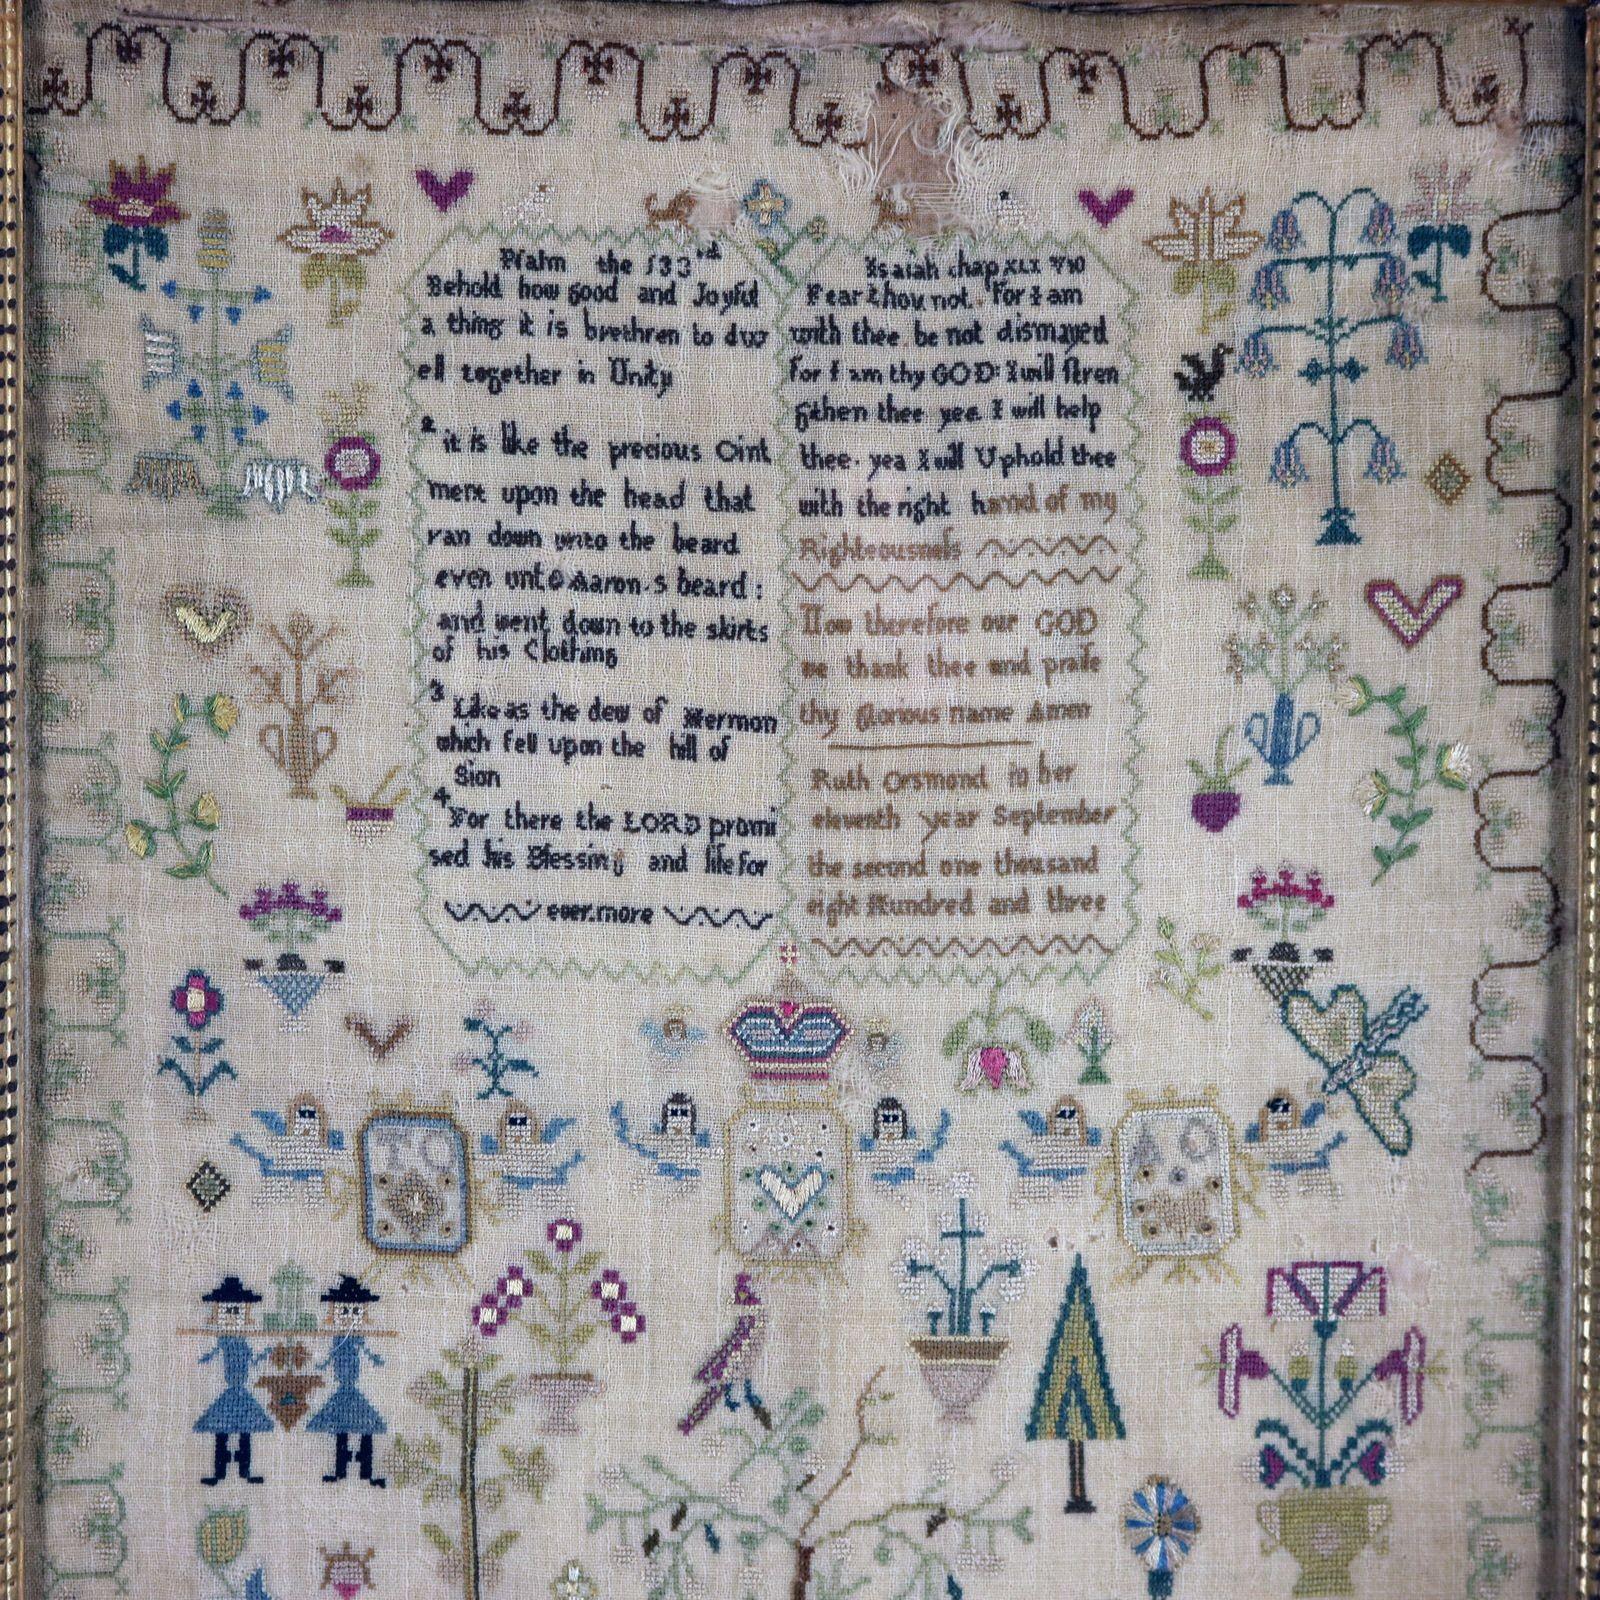 Psalm the 133rd
Behold how good and Joyful
a thing it is brethren to dw
ell together in Unity
2 it is like the precious Oint
ment upon the head that
ran down unto the beard
even unto Aaron.s beard :
and went down to the skirts
of his Clothing
3 Like as the dew of Hermon
which fell upon the hill of
Sion
4 For there the LORD promi
sed his Blessing and life for
ever.more
Isaiah chap XLI V10
Fear thou not. For I am
with thee be not dismayed
for I am thy GOD: I will ſtren
gthen thee yea I will help
thee. yea I will Uphold thee
with the right hannd of my
Righteousneſs
Now therefore our GOD
we thank thee and praiſe
thy Glorious name Amen
Ruth Orsmond in her
eleventh year September
the second one thousand
eight Hundred and three